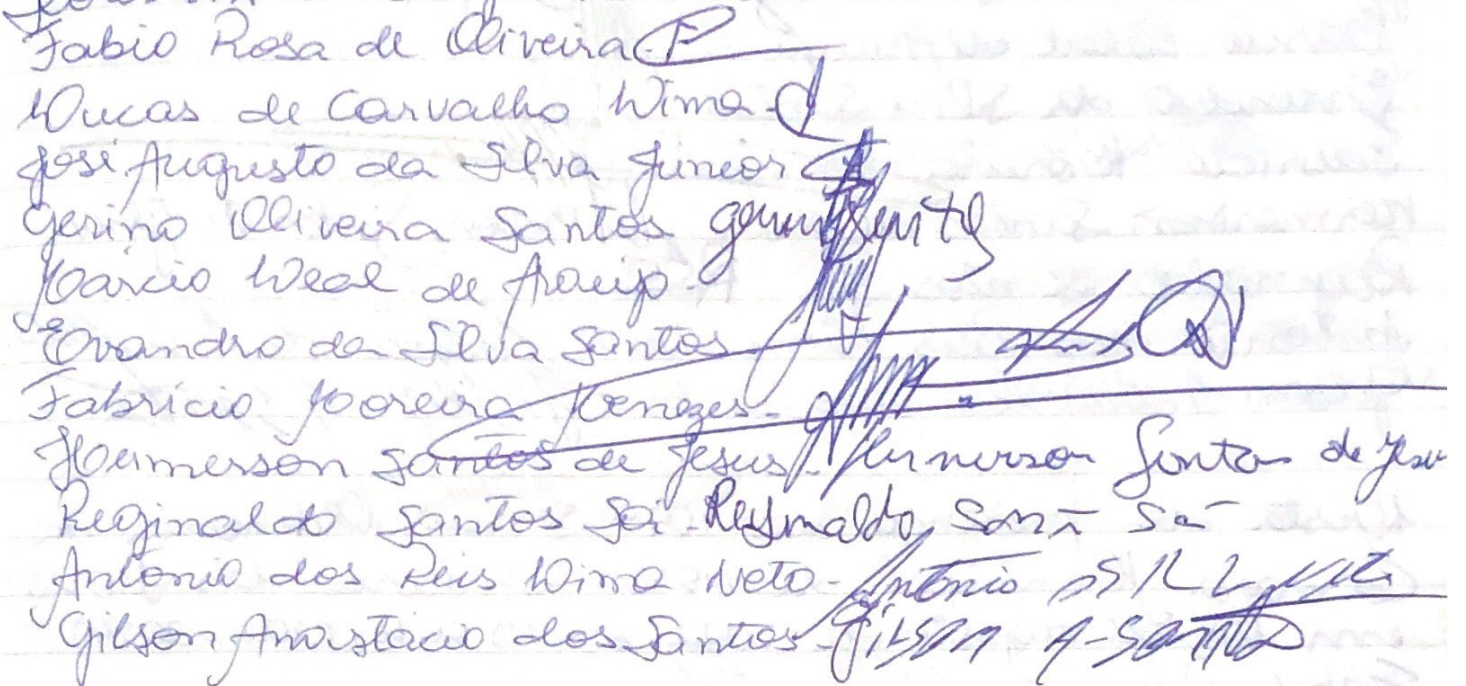 Fabio Rosa de Oliveira
Lucas de Carvalho Lima
José Augusto da Silva Junior
Gerino Oliveira Santos
Marcio Leal de Araujo
Evandro da Silva Santos
Fabricio Moreira Menezes
Hemerson Santos de Jesus Hemerson Santos de Jesu
Reginaldo Santos Sá Reginaldo Sá
Antonio dos Reis Lima Neto Antonio
Gilson Anastacio dos Santos Gilson A. Santos